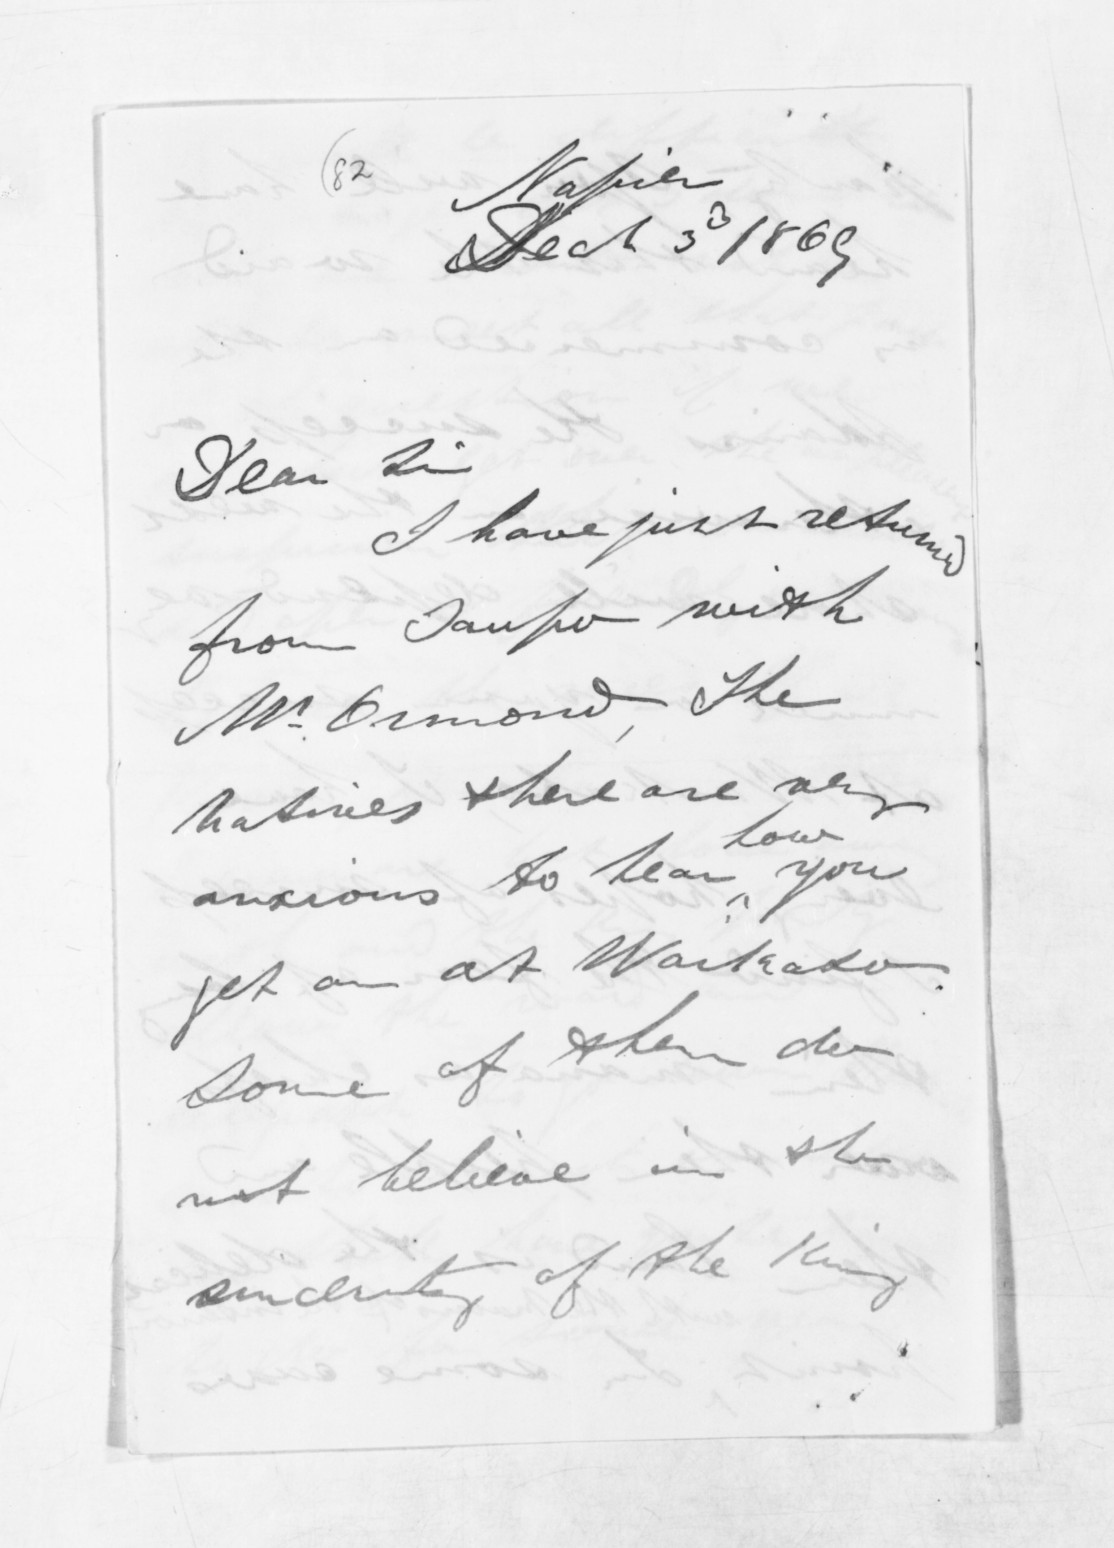 (82
Napier
Decr 3d/1869
Dear Sir
I have just returned
from Taupo with
Mr. Ormond, The
Natives there are very
anxious to hear how you
get on at Waikato.
Some of them do
not believe in the
sincerity of the King